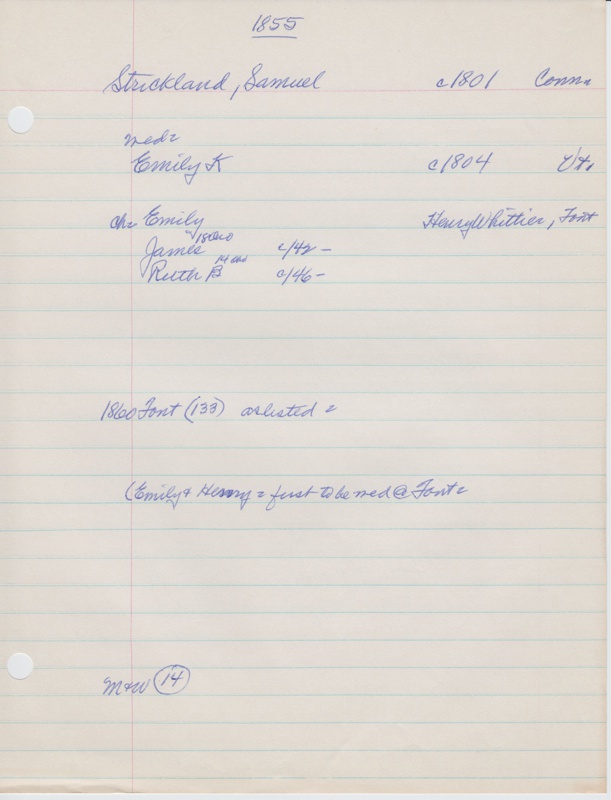 1855
Strickland, Samuel c1801 Conn.
wed=
Emily K c1804 Vt.
ch= Emily Henry Whittier, Font
James 18 c/42 -
Ruth B 14 c/46 -
1860 Font (133) as listed =
(Emily & Henry = first to be wed @ Font =
M&W 14